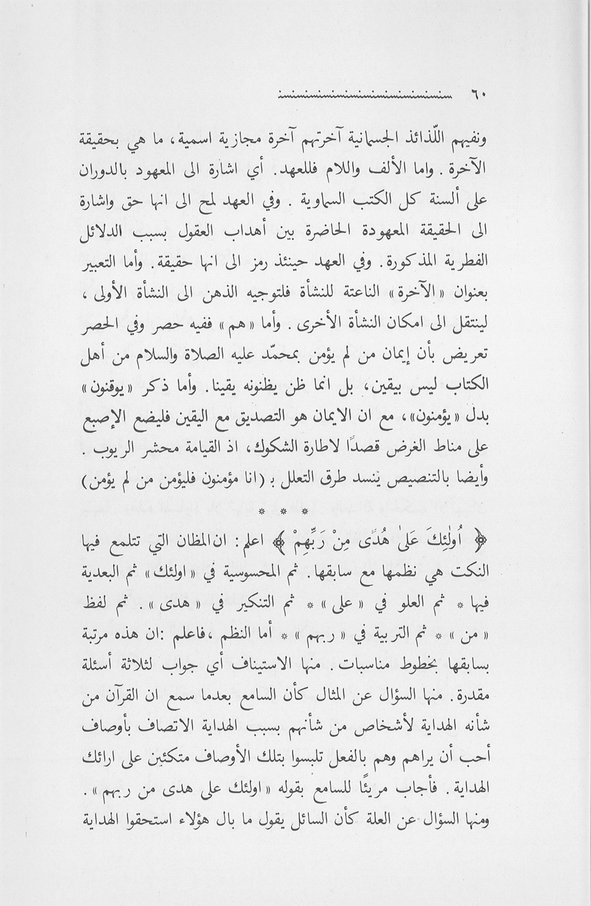 ٦٠
ونفيهم اللّذائذ الجسمانية آخرتهم آخرة مجازية اسمية، ما هي بحقيقة
الآخرة . واما الألف واللام فللعهد. أي اشارة الى المعهود بالدوران
على ألسنة كل الكتب السماوية . وفي العهد لمح الى انها حق واشارة
الى الحقيقة المعهودة الحاضرة بين أهداب العقول بسبب الدلائل
الفطرية المذكورة. وفي العهد حينئذ رمز الى انها حقيقة. وأما التعبير
بعنوان «الآخرة» الناعتة للنشأة فلتوجيه الذهن الى النشأة الأولى ،
لينتقل الى امكان النشأة الأخرى . وأما «هم» ففيه حصر وفي الحصر
تعريض بأن إيمان من لم يؤمن بمحمّد عليه الصلاة والسلام من أهل
الكتاب ليس بيقين، بل انما ظن يظنونه يقينا. وأما ذكر «يوقنون»
بدل «يؤمنون»، مع ان الايمان هو التصديق مع اليقين فليضع الإصبع
على مناط الغرض قصدًا لاطارة الشكوك، اذ القيامة محشر الريوب .
وأيضا بالتنصيص ينسد طرق التعلل بـ (انا مؤمنون فليؤمن من لم يؤمن)
* * *
﴿ اُولٰئِكَ عَلىٰ هُدًى مِنْ رَبِّهِمْ ﴾ اعلم: ان المظان التي تتلمع فيها
النكت هي نظمها مع سابقها. ثم المحسوسية في «اولئك» ثم البعدية
فيها * ثم العلو في «على» * ثم التنكير في «هدى» . ثم لفظ
«من» * ثم التربية في «ربهم» * أما النظم ،فاعلم :ان هذه مرتبة
بسابقها بخطوط مناسبات . منها الاستيناف أي جواب لثلاثة أسئلة
مقدرة. منها السؤال عن المثال كأن السامع بعدما سمع ان القرآن من
شأنه الهداية لأشخاص من شأنهم بسبب الهداية الاتصاف بأوصاف
أحب أن يراهم وهم بالفعل تلبسوا بتلك الأوصاف متكئين على ارائك
الهداية . فأجاب مريئًا للسامع بقوله «اولئك على هدى من ربهم» .
ومنها السؤال عن العلة كأن السائل يقول ما بال هؤلاء استحقوا الهداية